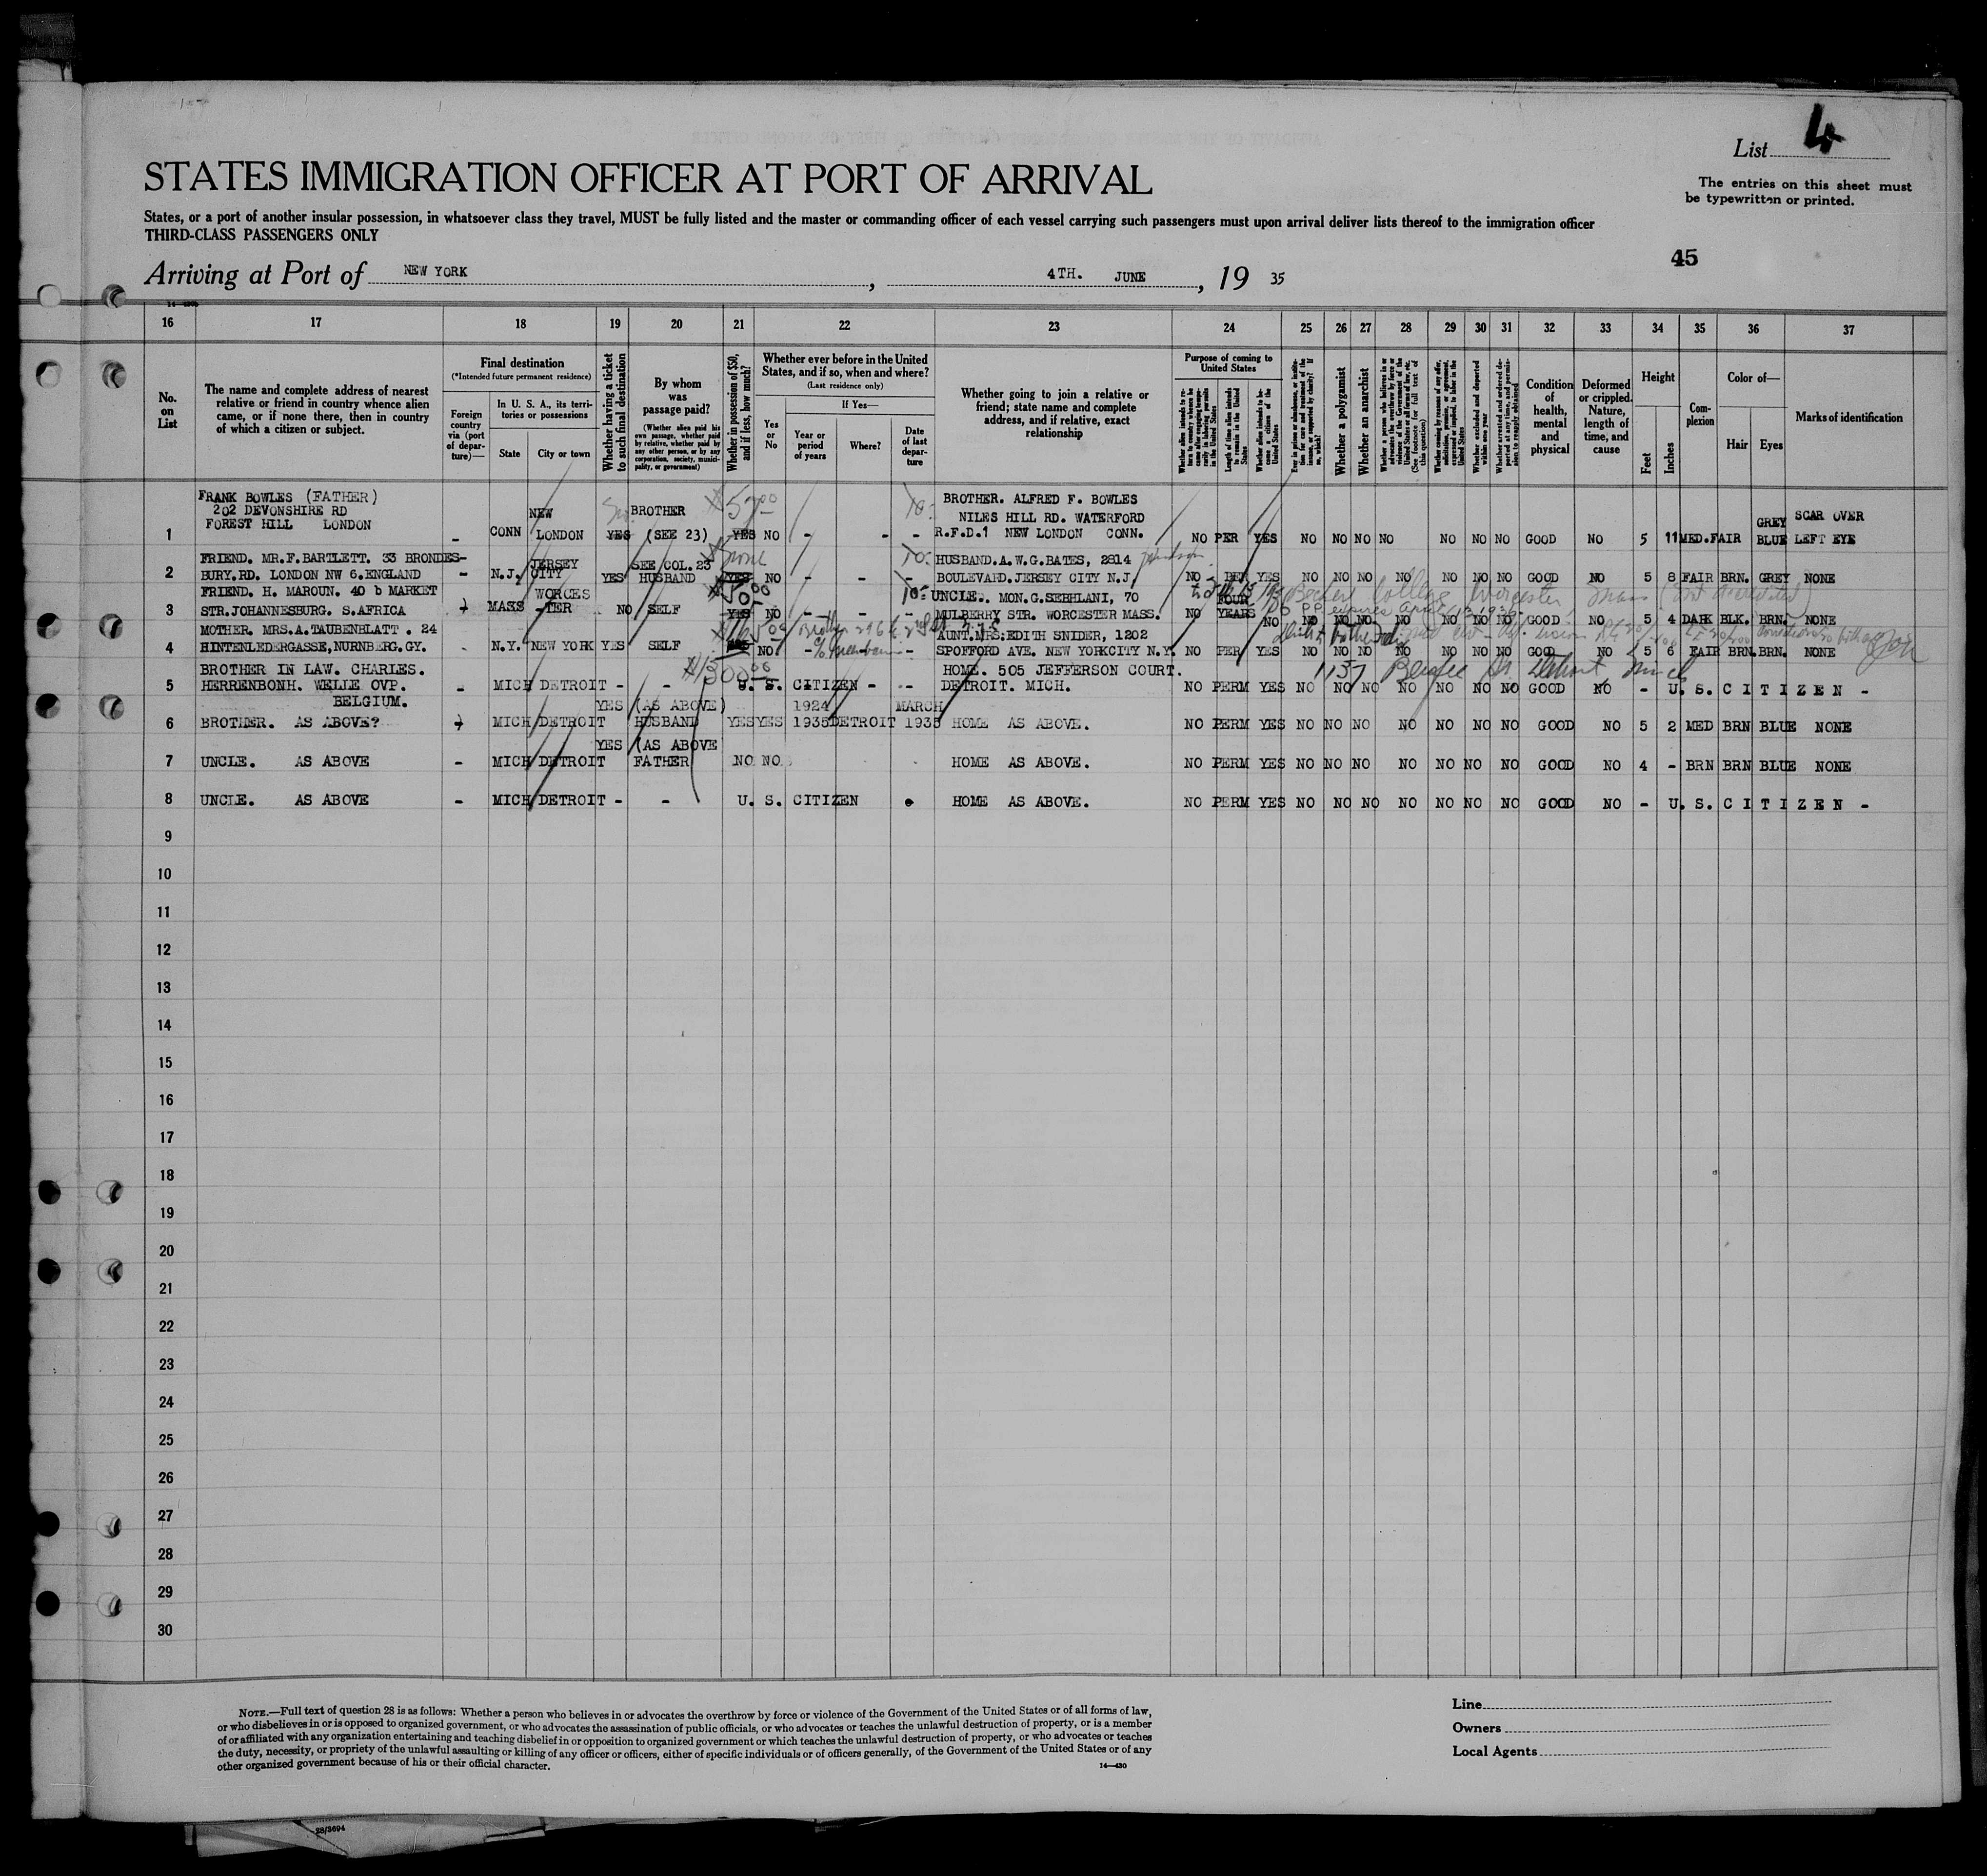 List 4
STATES IMMIGRATION OFFICER AT PORT OF ARRIVAL
The entries on this sheet must
be typewritten or printed.
States, or a port of another insular possession, in whatsoever class they travel, MUST be fully listed and the master or commanding officer of each vessel carrying such passengers must upon arrival deliver lists thereof to the immigration officer
THIRD-CLASS PASSENGERS ONLY
45
Arriving at Port of NEW YORK, 4TH. JUNE, 19 35
16 17 18 19 20 21 22 23 24 25 26 27 28 29 30 31 32 33 34 35 36 37
No. on List
The name and complete address of nearest relative or friend in country whence alien came, or if none there, then in country of which a citizen or subject.
Final destination
(*Intended future permanent residence)
Foreign country via (port of departure)—
In U. S. A., its territories or possessions
State
City or town
Whether having a ticket to such final destination
By whom was passage paid?
(Whether alien paid his own passage, whether paid by relative, whether paid by any other person, or by any corporation, society, municipality, or government)
Whether in possession of $50, and if less, how much?
Whether ever before in the United States, and if so, when and where?
(Last residence only)
Yes or No
If Yes—
Year or period of years
Where?
Date of last departure
Whether going to join a relative or friend; state name and complete address, and if relative, exact relationship
Purpose of coming to United States
Length of time alien intends to remain in the United States
Whether alien intends to become a citizen of the United States
Whether a polygamist
Whether an anarchist
Condition of health, mental and physical
Deformed or crippled. Nature, length of time, and cause
Height
Feet
Inches
Complexion
Color of—
Hair
Eyes
Marks of identification
FRANK BOWLES (FATHER) $50 00 BROTHER. ALFRED F. BOWLES
202 DEVONSHIRE RD NEW BROTHER NILES HILL RD. WATERFORD GREY SCAR OVER
FOREST HILL LONDON
1 - CONN LONDON YES (SEE 23) YES NO - - - R.F.D.1 NEW LONDON CONN. NO PER YES NO NO NO NO NO NO NO GOOD NO 5 11 MED.FAIR BLUE LEFT EYE
FRIEND. MR.F.BARTLETT. 33 BRONDES- JERSEY SEE COL.23 HUSBAND.A.W.G.BATES, 2814
2 BURY.RD. LONDON NW 6.ENGLAND - N.J. CITY YES HUSBAND YES NO - - - BOULEVARD.JERSEY CITY N.J. NO PER YES NO NO NO NO NO NO NO GOOD NO 5 8 FAIR BRN. GREY NONE
FRIEND. H. MAROUN. 40 b MARKET WORCES UNCLE.. MON.G.SEBHLANI, 70 FOUR Becker College Worcester
3 STR.JOHANNESBURG. S.AFRICA MASS -TER NO SELF YES NO - - - MULBERRY STR. WORCESTER MASS. NO YEARS NO NO NO NO NO NO NO NO GOOD NO 5 4 DARK BLK. BRN. NONE
MOTHER. MRS.A.TAUBENBLATT . 24 AUNT.MRS:EDITH SNIDER, 1202
4 HINTENLEDERGASSE,NURNBERG.GY. - N.Y. NEW YORK YES SELF NO - - - SPOFFORD AVE. NEW YORKCITY N.Y. NO PER YES NO NO NO NO NO NO NO GOOD NO 5 6 FAIR BRN. BRN. NONE
BROTHER IN LAW. CHARLES. HOME. 505 JEFFERSON COURT. 1137 Detroit, Mich
5 HERRENBONH. WELLE OVP. - MICH DETROIT - - U. S. CITIZEN - - DETROIT. MICH. NO PERM YES NO NO NO NO NO NO NO GOOD NO - U. S. C I T I Z E N -
BELGIUM. YES (AS ABOVE) 1924 MARCH
6 BROTHER. AS ABOVE? MICH DETROIT HUSBAND YES YES 1935 DETROIT 1935 HOME AS ABOVE. NO PERM YES NO NO NO NO NO NO NO GOOD NO 5 2 MED BRN BLUE NONE
YES (AS ABOVE
7 UNCLE. AS ABOVE - MICH DETROIT FATHER NO NO HOME AS ABOVE. NO PERM YES NO NO NO NO NO NO NO GOOD NO 4 - BRN BRN BLUE NONE
8 UNCLE. AS ABOVE - MICH DETROIT - - U. S. CITIZEN HOME AS ABOVE. NO PERM YES NO NO NO NO NO NO NO GOOD NO - U. S. C I T I Z E N -
9
10
11
12
13
14
15
16
17
18
19
20
21
22
23
24
25
26
27
28
29
30
NOTE.—Full text of question 28 is as follows: Whether a person who believes in or advocates the overthrow by force or violence of the Government of the United States or of all forms of law,
or who disbelieves in or is opposed to organized government, or who advocates the assassination of public officials, or who advocates or teaches the unlawful destruction of property, or is a member
of or affiliated with any organization entertaining and teaching disbelief in or opposition to organized government or which teaches the unlawful destruction of property, or who advocates or teaches
the duty, necessity, or propriety of the unlawful assaulting or killing of any officer or officers, either of specific individuals or of officers generally, of the Government of the United States or of any
other organized government because of his or their official character.
14—430
Line
Owners
Local Agents
28/3694